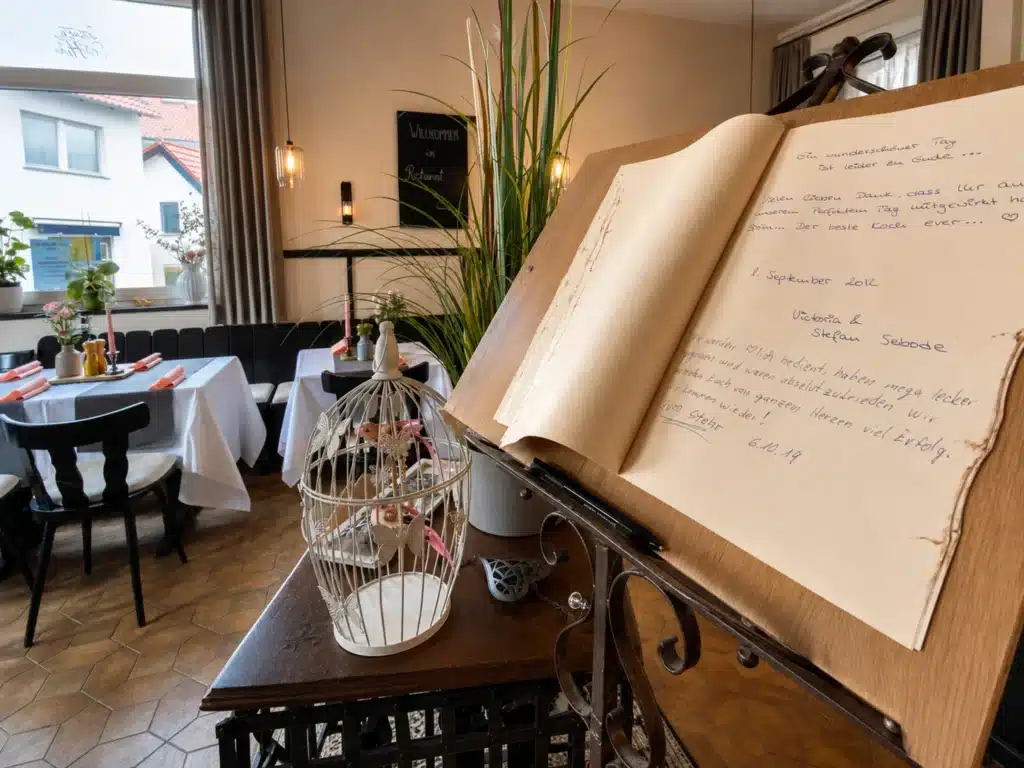 WILLKOMMEN
im
Restaurant
Ein wunderschöner Tag
ist leider zu Ende ...
Vielen lieben Dank, dass Ihr an
unserem Perfekten Tag mitgewirkt
Der beste Koch ever ... ♡
8. September 2012
Victoria &
Stefan Sebode
bedient, haben mega lecker
gegessen und waren absolut zufrieden. Wir
Euch von ganzem Herzen viel Erfolg.
kommen wieder!
6.10.19